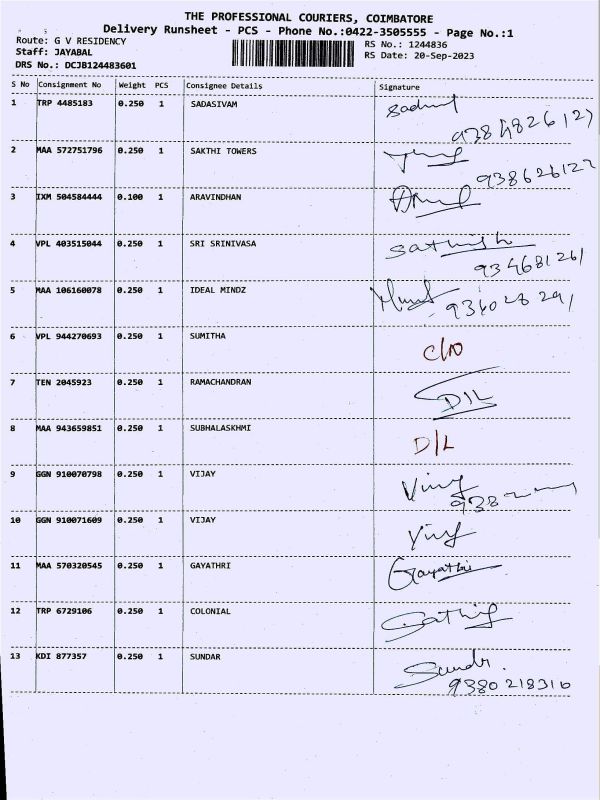 THE PROFESSIONAL COURIERS, COIMBATORE
Delivery Runsheet - PCS - Phone No.:0422-3505555 - Page No.:1
Route: G V RESIDENCY
RS No.: 1244836
Staff: JAYABAL
RS Date: 20-Sep-2023
DRS No.: DCJB124483601
S No Consignment No Weight PCS Consignee Details Signature
1 TRP 4485183 0.250 1 SADASIVAM
2 MAA 572751796 0.250 1 SAKTHI TOWERS
938626122
3 IXM 504584444 0.100 1 ARAVINDHAN
4 VPL 403515044 0.250 1 SRI SRINIVASA Sathish
934681261
5 MAA 106160078 0.250 1 IDEAL MINDZ
6 VPL 944270693 0.250 1 SUMITHA
7 TEN 2045923 0.250 1 RAMACHANDRAN D/L
8 MAA 943659851 0.250 1 SUBHALASKHMI D/L
9 GGN 910070798 0.250 1 VIJAY
10 GGN 910071609 0.250 1 VIJAY
11 MAA 570320545 0.250 1 GAYATHRI Gayathri
12 TRP 6729106 0.250 1 COLONIAL
13 KDI 877357 0.250 1 SUNDAR Sundr.
9380218316